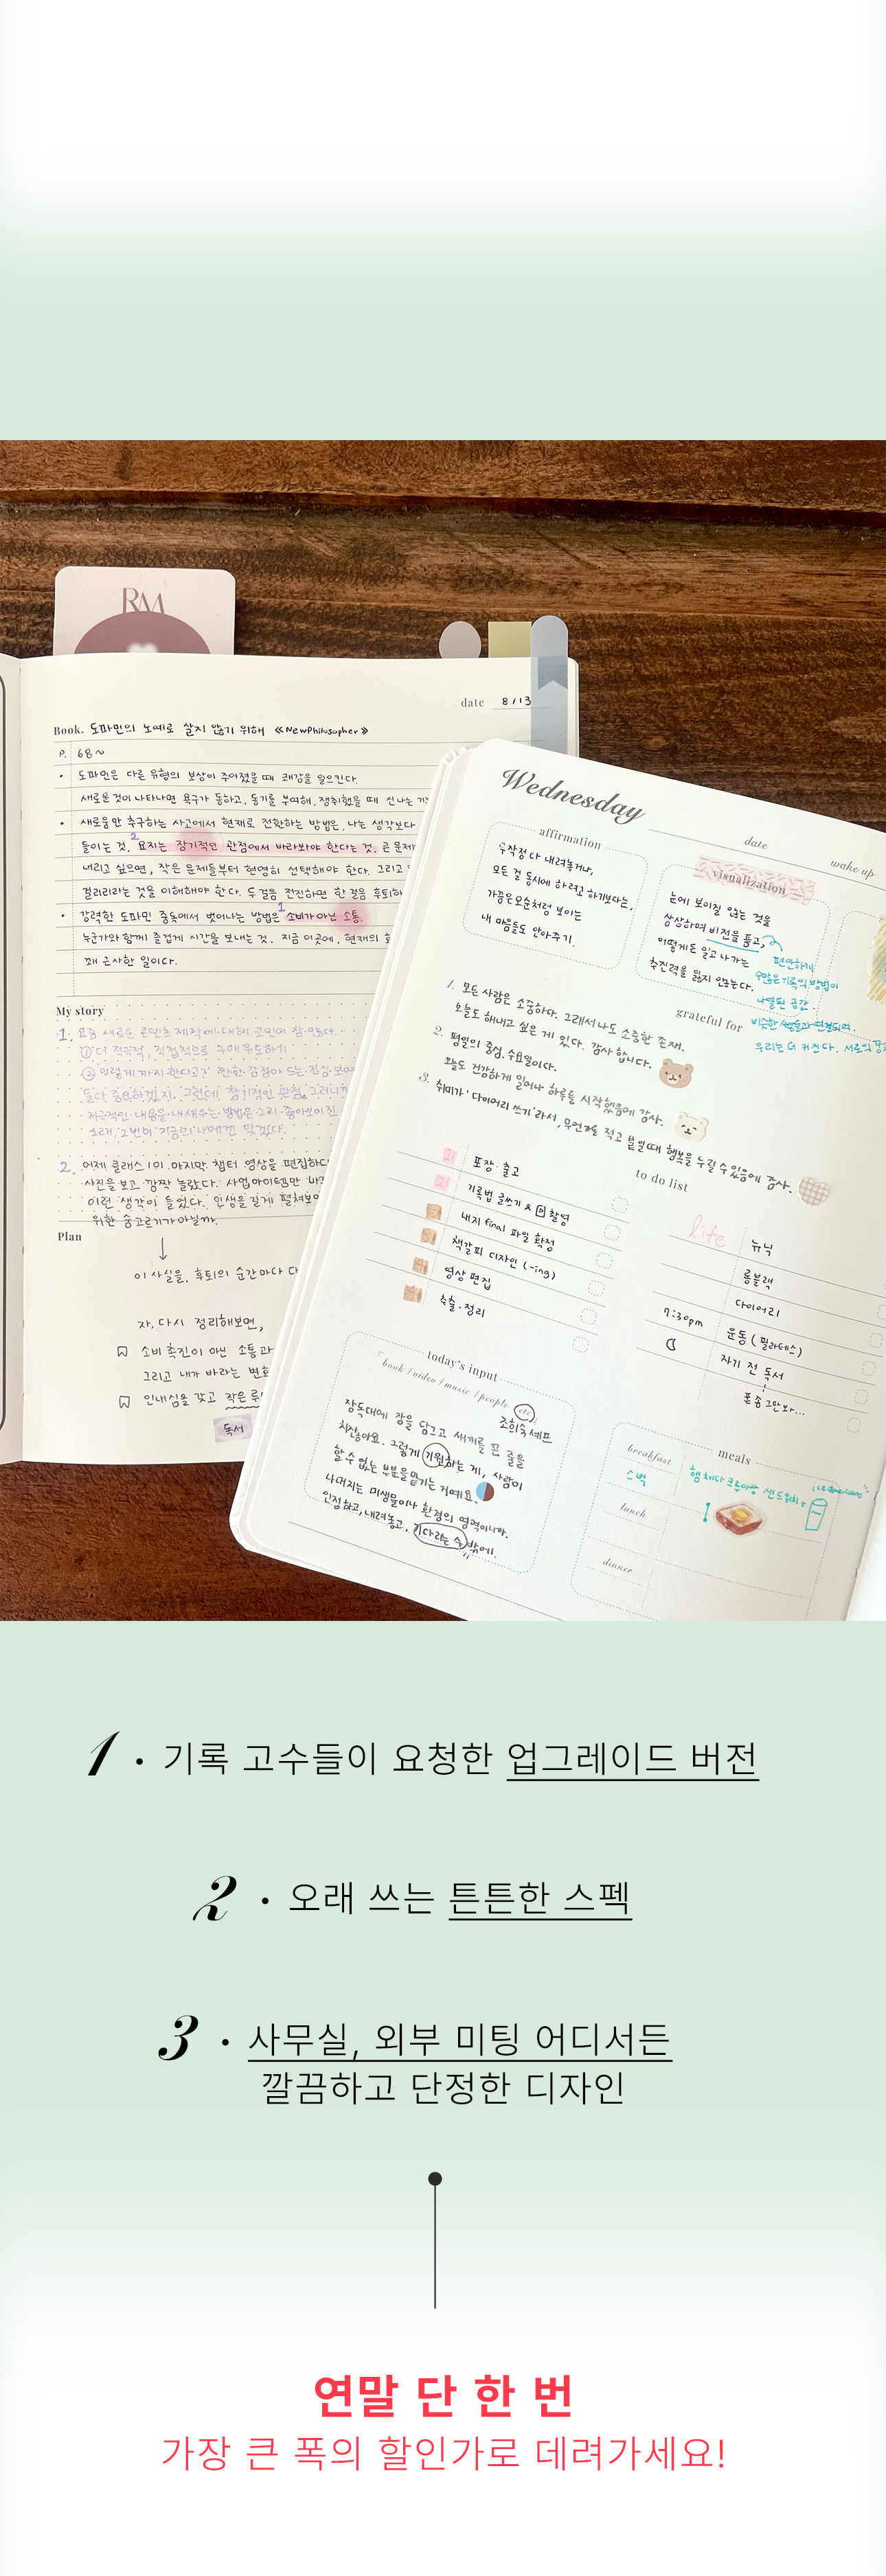 RM
date 8/13
Book. 도파민의 노예로 살지 않기 위해 《NewPhilosopher》
P. 68~
• 도파민은 다른 유형의 보상이 주어졌을 때 쾌감을 일으킨다.
새로운 것이 나타나면 욕구가 동하고, 동기를 부여해, 쟁취했을 때 신나는
• 새로움만 추구하는 사고에서 현재로 전환하는 방법은, 나는 생각보다
들이는 것. 2 요지는 장기적인 관점에서 바라봐야 한다는 것. 큰 문제
내리고 싶으면, 작은 문제들부터 현명히 선택해야 한다. 그리고
걸리리라는 것을 이해해야 한다. 두 걸음 전진하면 한 걸음 후퇴하
• 강력한 도파민 중독에서 벗어나는 방법은 1 소비가 아닌 소통.
누군가와 함께 즐겁게 시간을 보내는 것. 지금 이곳에, 현재의
꽤 근사한 일이다.
My story
1. 요즘 새로운 콘텐츠 제작에 대해 고민이 참 많다.
① 더 적극적, 직접적으로 구매 유도하기
② 이렇게까지 한다고? 찐한 감정이 드는 진심
둘 다 중요하겠지. 그런데, 장기적인 관점, 그러니까
자극적인 내용을 내세우는 방법은 그리 좋아보이진
2. 어제 클래스101 마지막 챕터 영상을 편집하다
사진을 보고 깜짝 놀랐다. 사업 아이템만 바
이런 생각이 들었다. 인생을 길게 펼쳐보
위한 숨고르기가 아닐까.
Plan
이 사실을, 후퇴의 순간마다
자, 다시 정리해보면,
소비 촉진이 아닌 소통과
그리고 내가 바라는 변화
인내심을 갖고 작은
독서
Wednesday
date
wake up
affirmation
수작정 다 내려놓거나,
모든 걸 동시에 하려고 하기보다는,
가끔은 모순처럼 보이는
내 마음들도 안아주기.
visualization
눈에 보이질 않는 것을
상상하며 비전을 품고,
어떻게든 알고 나가는
추진력을 잃지 않는다.
편안하게
수많은 기록의 방법이
나열된 공간
비슷한 사람들과 연결되며.
우리는 더 커진다.
grateful for
1. 모든 사람은 소중하다. 그래서 나도 소중한 존재.
오늘도 해내고 싶은 게 있다. 감사합니다.
2. 평일의 중심, 수요일이다.
오늘도 건강하게 일어나 하루를 시작했음에 감사.
3. 취미가 '다이어리 쓰기'라서, 무언가를 적고 붙일 때 행복을 누릴 수 있음에 감사.
to do list
포장·출고
기록법 글쓰기 & 촬영
내지 final 파일 확정
책갈피 디자인 (-ing)
영상 편집
축출·정리
life
뉴닉
롱블랙
다이어리
7:30pm 운동 (필라테스)
자기 전 독서
폰 좀 그만 봐...
today's input
book / video / music / people etc.
조희숙 셰프
장독대에 장을 담그고 새끼를 꼰 줄을
치잖아요. 그렇게 기원하는 게, 사람이
할 수 없는 부분을 맡기는 거예요.
나머지는 미생물이나 환경의 영역이니까.
인정하고, 내려놓고, 기다리는 수밖에.
meals
breakfast
스벅
햄 체다 크루아상 샌드위치 +
ice americano
lunch
dinner
1 · 기록 고수들이 요청한 업그레이드 버전
2 · 오래 쓰는 튼튼한 스펙
3 · 사무실, 외부 미팅 어디서든
깔끔하고 단정한 디자인
연말 단 한 번
가장 큰 폭의 할인가로 데려가세요!